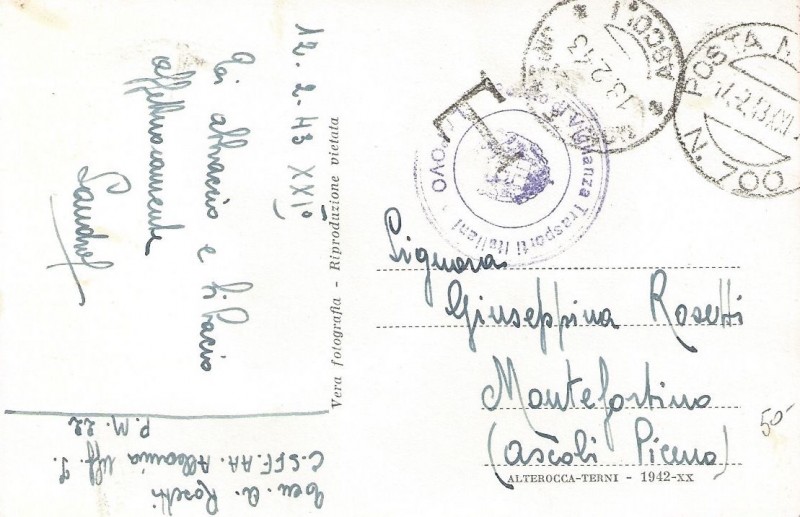 12. 2. 43 XXI°
Ti abbraccio e ti bacio
affettuosamente
Sandro
Ten. A. Rosetti
C.S.FF.AA. Albania Uff. S.
P.M. 22
Vera fotografia - Riproduzione vietata
ASCOLI
13.2.43
POSTA
N. 200
12.2.43 XXI
T
Trasporti Italiani
Signora
Giuseppina Rosetti
Montefortino
(Ascoli Piceno)
ALTEROCCA-TERNI - 1942-XX
50-